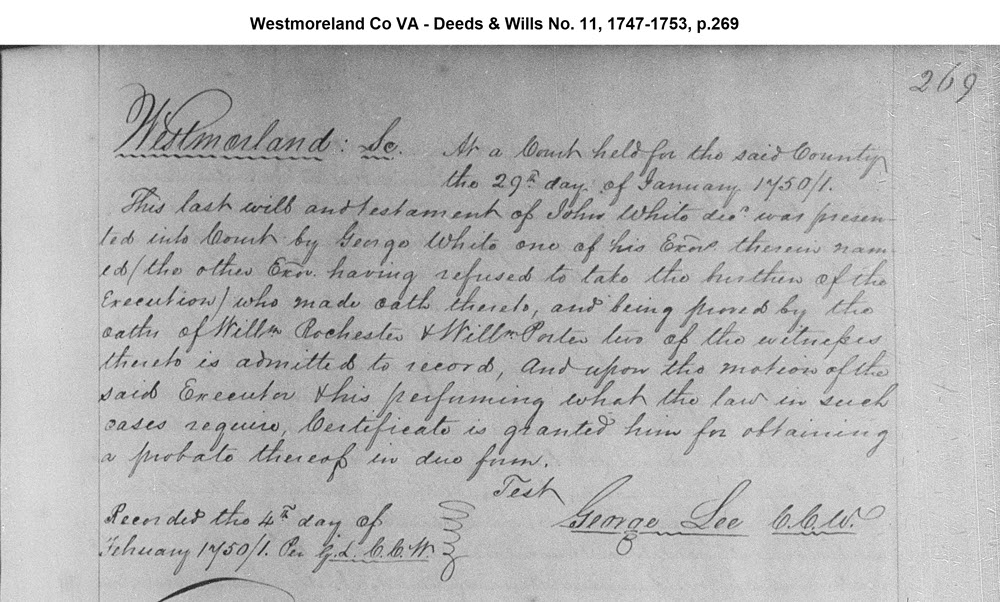 Westmoreland Co VA - Deeds & Wills No. 11, 1747-1753, p.269
269
Westmorland: Sc. At a Court held for the said County
the 29th day of January 1750/1.
This last will and testament of John White decd was presen-
ted into Court by George White one of his Exors therein nam-
ed (the other Exor. having refused to take the burthen of the
Execution) who made oath thereto, and being proved by the
oaths of Willm Rochester & Willm Porter two of the witnesses
thereto is admitted to record, And upon the motion of the
said Executor & his performing what the law in such
cases require, Certificate is granted him for obtaining
a probate thereof in due form.
Test
George Lee C.C.W.
Recorded the 4th day of
February 1750/1. Per G.L. C.C.W.